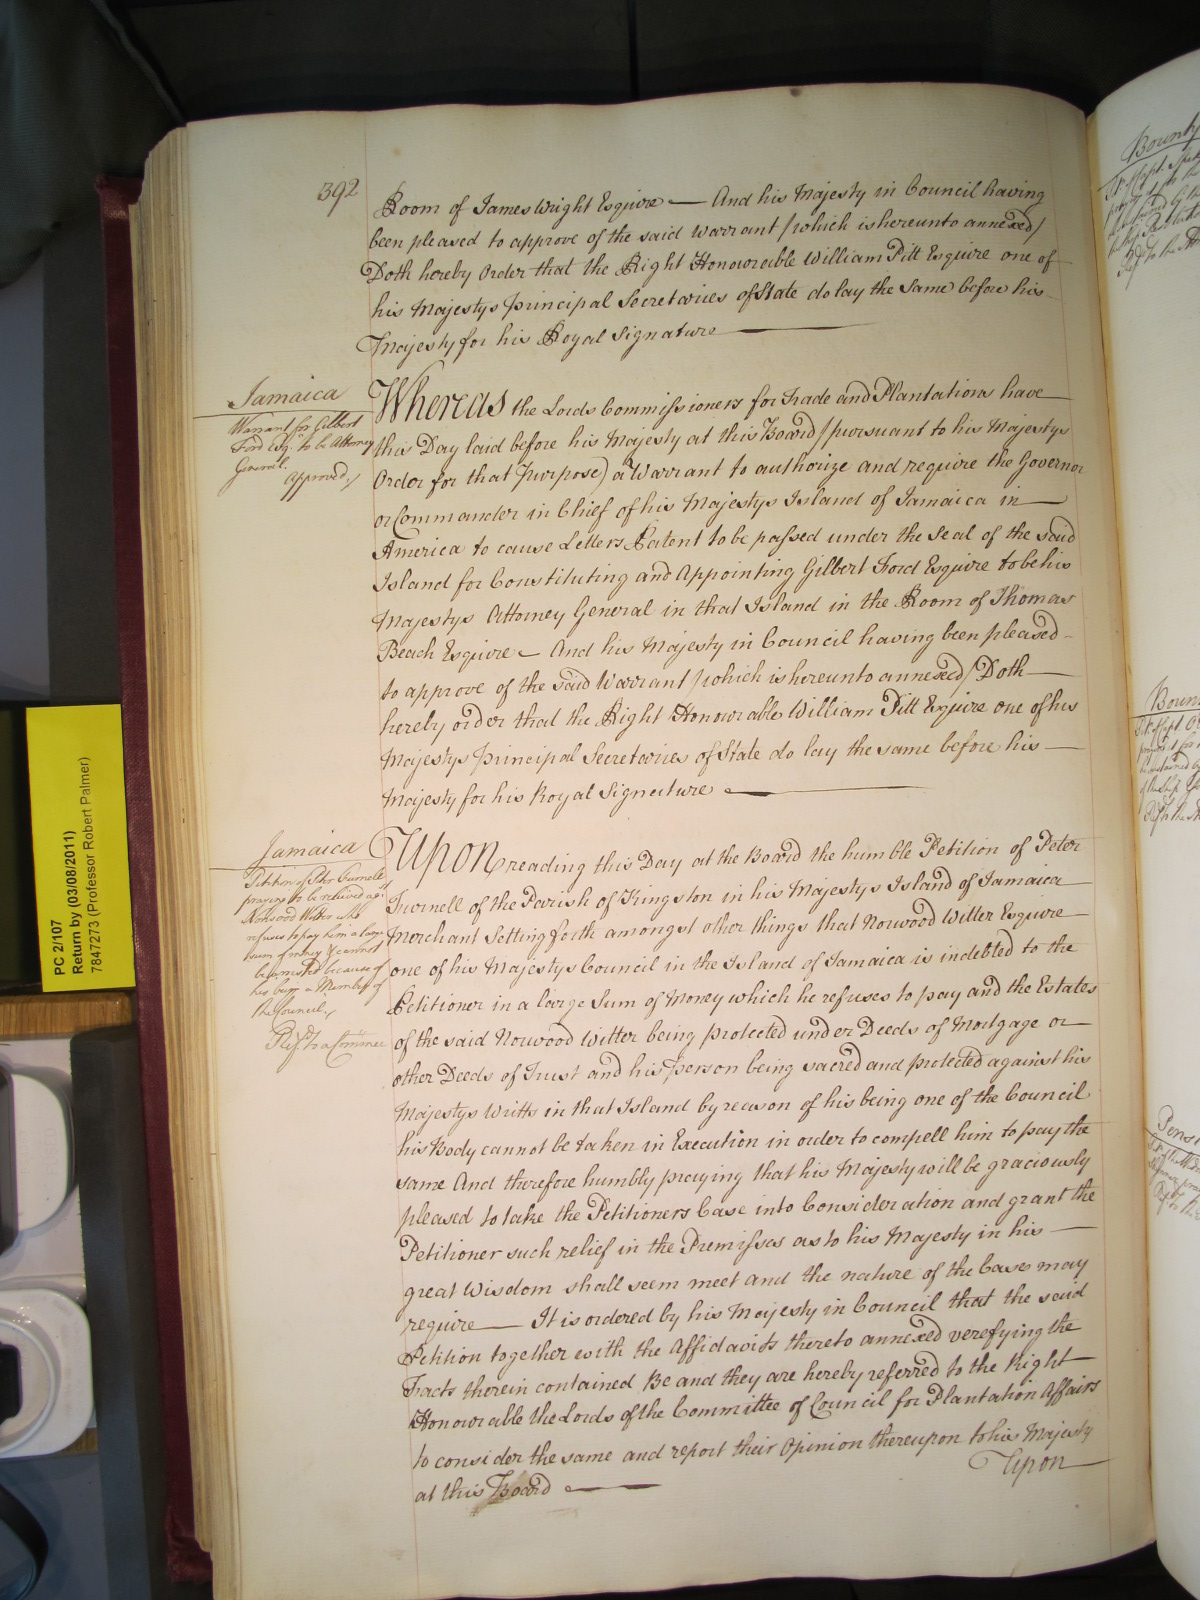 392
Room of James Wright Esquire — And his Majesty in Council having
been pleased to approve of the said Warrant /which is hereunto annexed/
Doth hereby Order that the Right Honourable William Pitt Esquire one of
his Majestys principal Secretaries of State do lay the Same before his
Majesty for his Royal Signature
Jamaica
Warrant for Gilbert
Ford Esqr. to be Attorney
General.
Approved
Whereas the Lords Commissioners for Trade and Plantations have
this Day laid before his Majesty at this Board /pursuant to his Majestys
Order for that Purpose) a Warrant to authorize and require the Governor
or Commander in Chief of his Majestys Island of Jamaica in
America to cause Letters Patent to be passed under the Seal of the said
Island for Constituting and Appointing Gilbert Ford Esquire to be his
Majestys Attorney General in that Island in the Room of Thomas
Beach Esquire — And his Majesty in Council having been pleased
to approve of the said Warrant /which is hereunto annexed/ Doth
hereby order that the Right Honourable William Pitt Esquire one of his
Majestys principal Secretaries of State do lay the same before his
Majesty for his Royal Signature
Jamaica
Petition of Peter Furnell
praying to be relieved agt.
Norwood Witter who
refuses to pay him a large
sum of money & cannot
be arrested because of
his being a Member of
the Council.
Refd. to a Commee
Upon reading this Day at the Board the humble Petition of Peter
Furnell of the Parish of Kingston in his Majestys Island of Jamaica
Merchant Setting forth amongst other things that Norwood Witter Esquire
one of his Majestys Council in the Island of Jamaica is indebted to the
Petitioner in a large Sum of Money which he refuses to pay and the Estates
of the said Norwood Witter being protected under Deeds of Mortgage or
other Deeds of Trust and his person being sacred and protected against his
Majestys Writts in that Island by reason of his being one of the Council
his Body cannot be taken in Execution in order to compell him to pay the
same And therefore humbly praying that his Majesty will be graciously
pleased to take the Petitioners Case into Consideration and grant the
Petitioner such relief in the Premisses as to his Majesty in his
great Wisdom shall seem meet and the nature of the Case may
require — It is ordered by his Majesty in Council that the said
Petition together with the Affidavits thereto annexed verefying the
Facts therein contained Be and they are hereby referred to the Right
Honourable the Lords of the Committee of Council for Plantation Affairs
to consider the same and report their Opinion thereupon to his Majesty
at this Board
Upon
PC 2/107
Return by (03/08/2011)
7847273 (Professor Robert Palmer)
Bounty